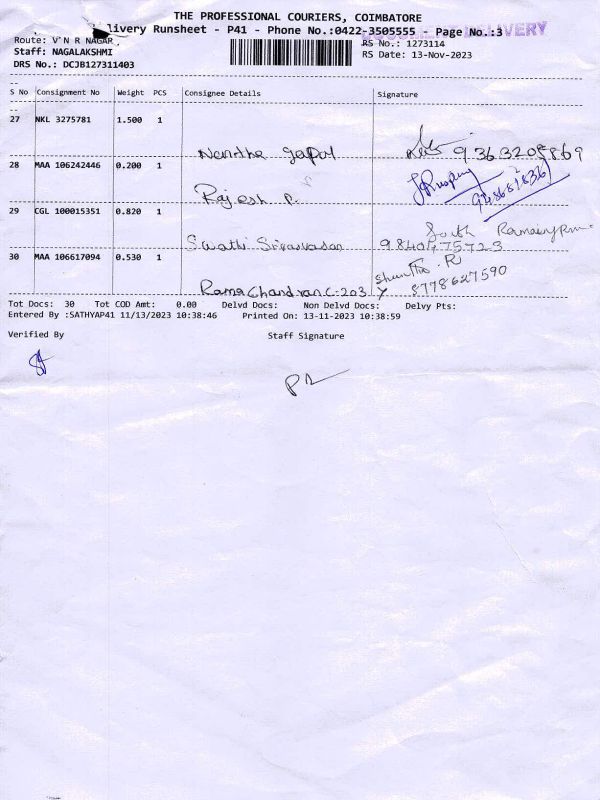 THE PROFESSIONAL COURIERS, COIMBATORE
Delivery Runsheet - P41 - Phone No.:0422-3505555 - Page No.:3
DELIVERY
Route: V N R NAGAR
RS No.: 1273114
Staff: NAGALAKSHMI
RS Date: 13-Nov-2023
DRS No.: DCJB127311403
S No Consignment No Weight PCS Consignee Details Signature
27 NKL 3275781 1.500 1
Nanitha gopal 9363205869
28 MAA 106242446 0.200 1
Rajesh P.
29 CGL 100015351 0.820 1
Swathi Srinivasan 9840475723
30 MAA 106617094 0.530 1
Shantha R
Ramachandran C-203 8778627590
Tot Docs: 30 Tot COD Amt: 0.00 Delvd Docs: Non Delvd Docs: Delvy Pts:
Entered By :SATHYAP41 11/13/2023 10:38:46 Printed On: 13-11-2023 10:38:59
Verified By Staff Signature